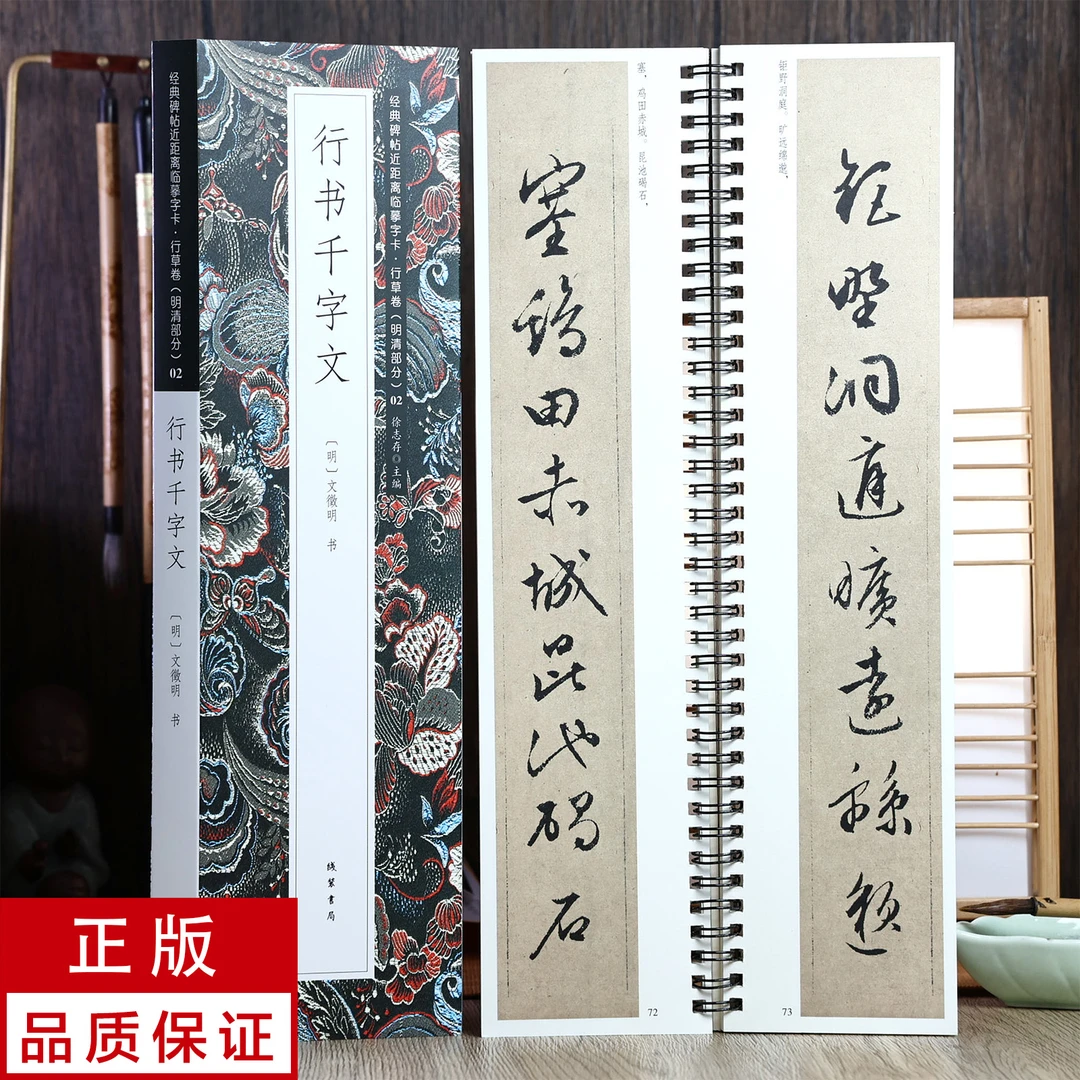 经典碑帖近距离临摹字卡·行草卷(明清部分)02
行书千字文
〔明〕文徵明 书
经典碑帖近距离临摹字卡·行草卷(明清部分)02 徐志存◎主编
行书千字文
〔明〕文徵明 书
线装书局
塞,鸡田赤城。昆池碣石,
塞鸡田赤城昆池碣石
72
钜野洞庭。旷远绵邈,
钜野洞庭旷远绵邈
73
正版
品质保证